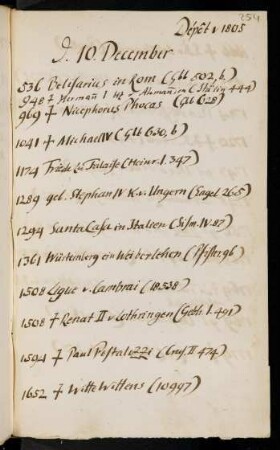 254
Depôt v 1805
d. 10. December
536 Belisarius in Rom (Gbl. 502, b.)
948 † Hermañ I Hz v Alemanien (Stälin 444)
969 † Nicephorus Phocas (Gbl 628)
1041 † Michael IV (Gbl 630, b)
1174 Friede zu Falaise (Heinr. I. 347)
1289 gel. Stephan IV K. v. Ungern (Engel 265)
1294 Santa Casa in Italien (Sism. IV. 87)
1361 Würtemberg ein Weiberlehen (Pfister 96)
1508 Ligue v. Cambrai (18.538)
1508 † Renat II v Lothringen (Gsth. I. 491)
1594 † Paul Pistalozzi (II 474)
1652 † Witte Wittens (10997)